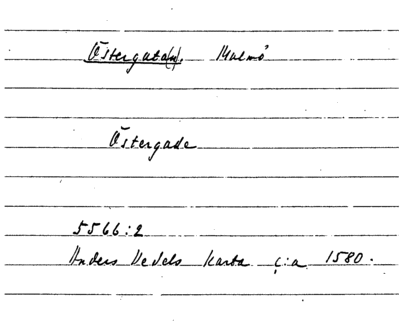 Östergata(n). Malmö
Östergade
5566:2
Anders Vedels karta c:a 1580.